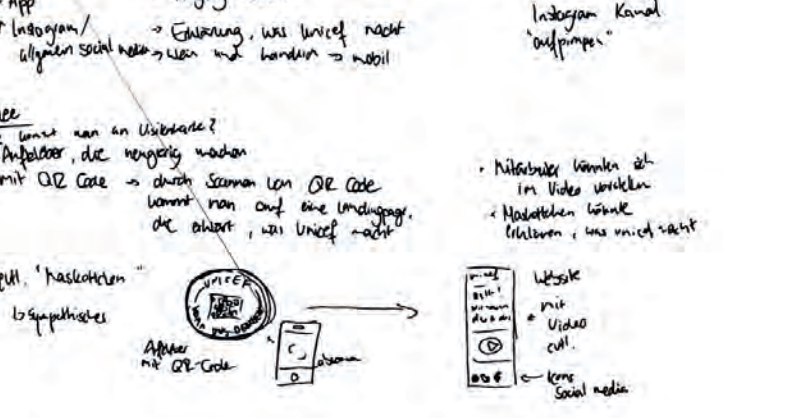 App
Instagram/
allgemein social media
→ Erklärung, was Unicef macht
→ klein und handlich → mobil
Instagram Kanal
"aufpimpen"
kommt man an Visitenkarte?
Aufkleber, die neugierig machen
mit QR Code → durch Scannen von QR Code
kommt man auf eine Landingpage,
die erklärt, was Unicef macht
• Mitarbeiter könnten sich
im Video vorstellen
• Maskottchen könnte
erklären, was unicef macht
evtl. "Maskottchen"
↳ Sympathisches
UNICEF
Aufkleber
mit QR-Code
unicef
Website
mit
Video
evtl.
← Icons
Social media